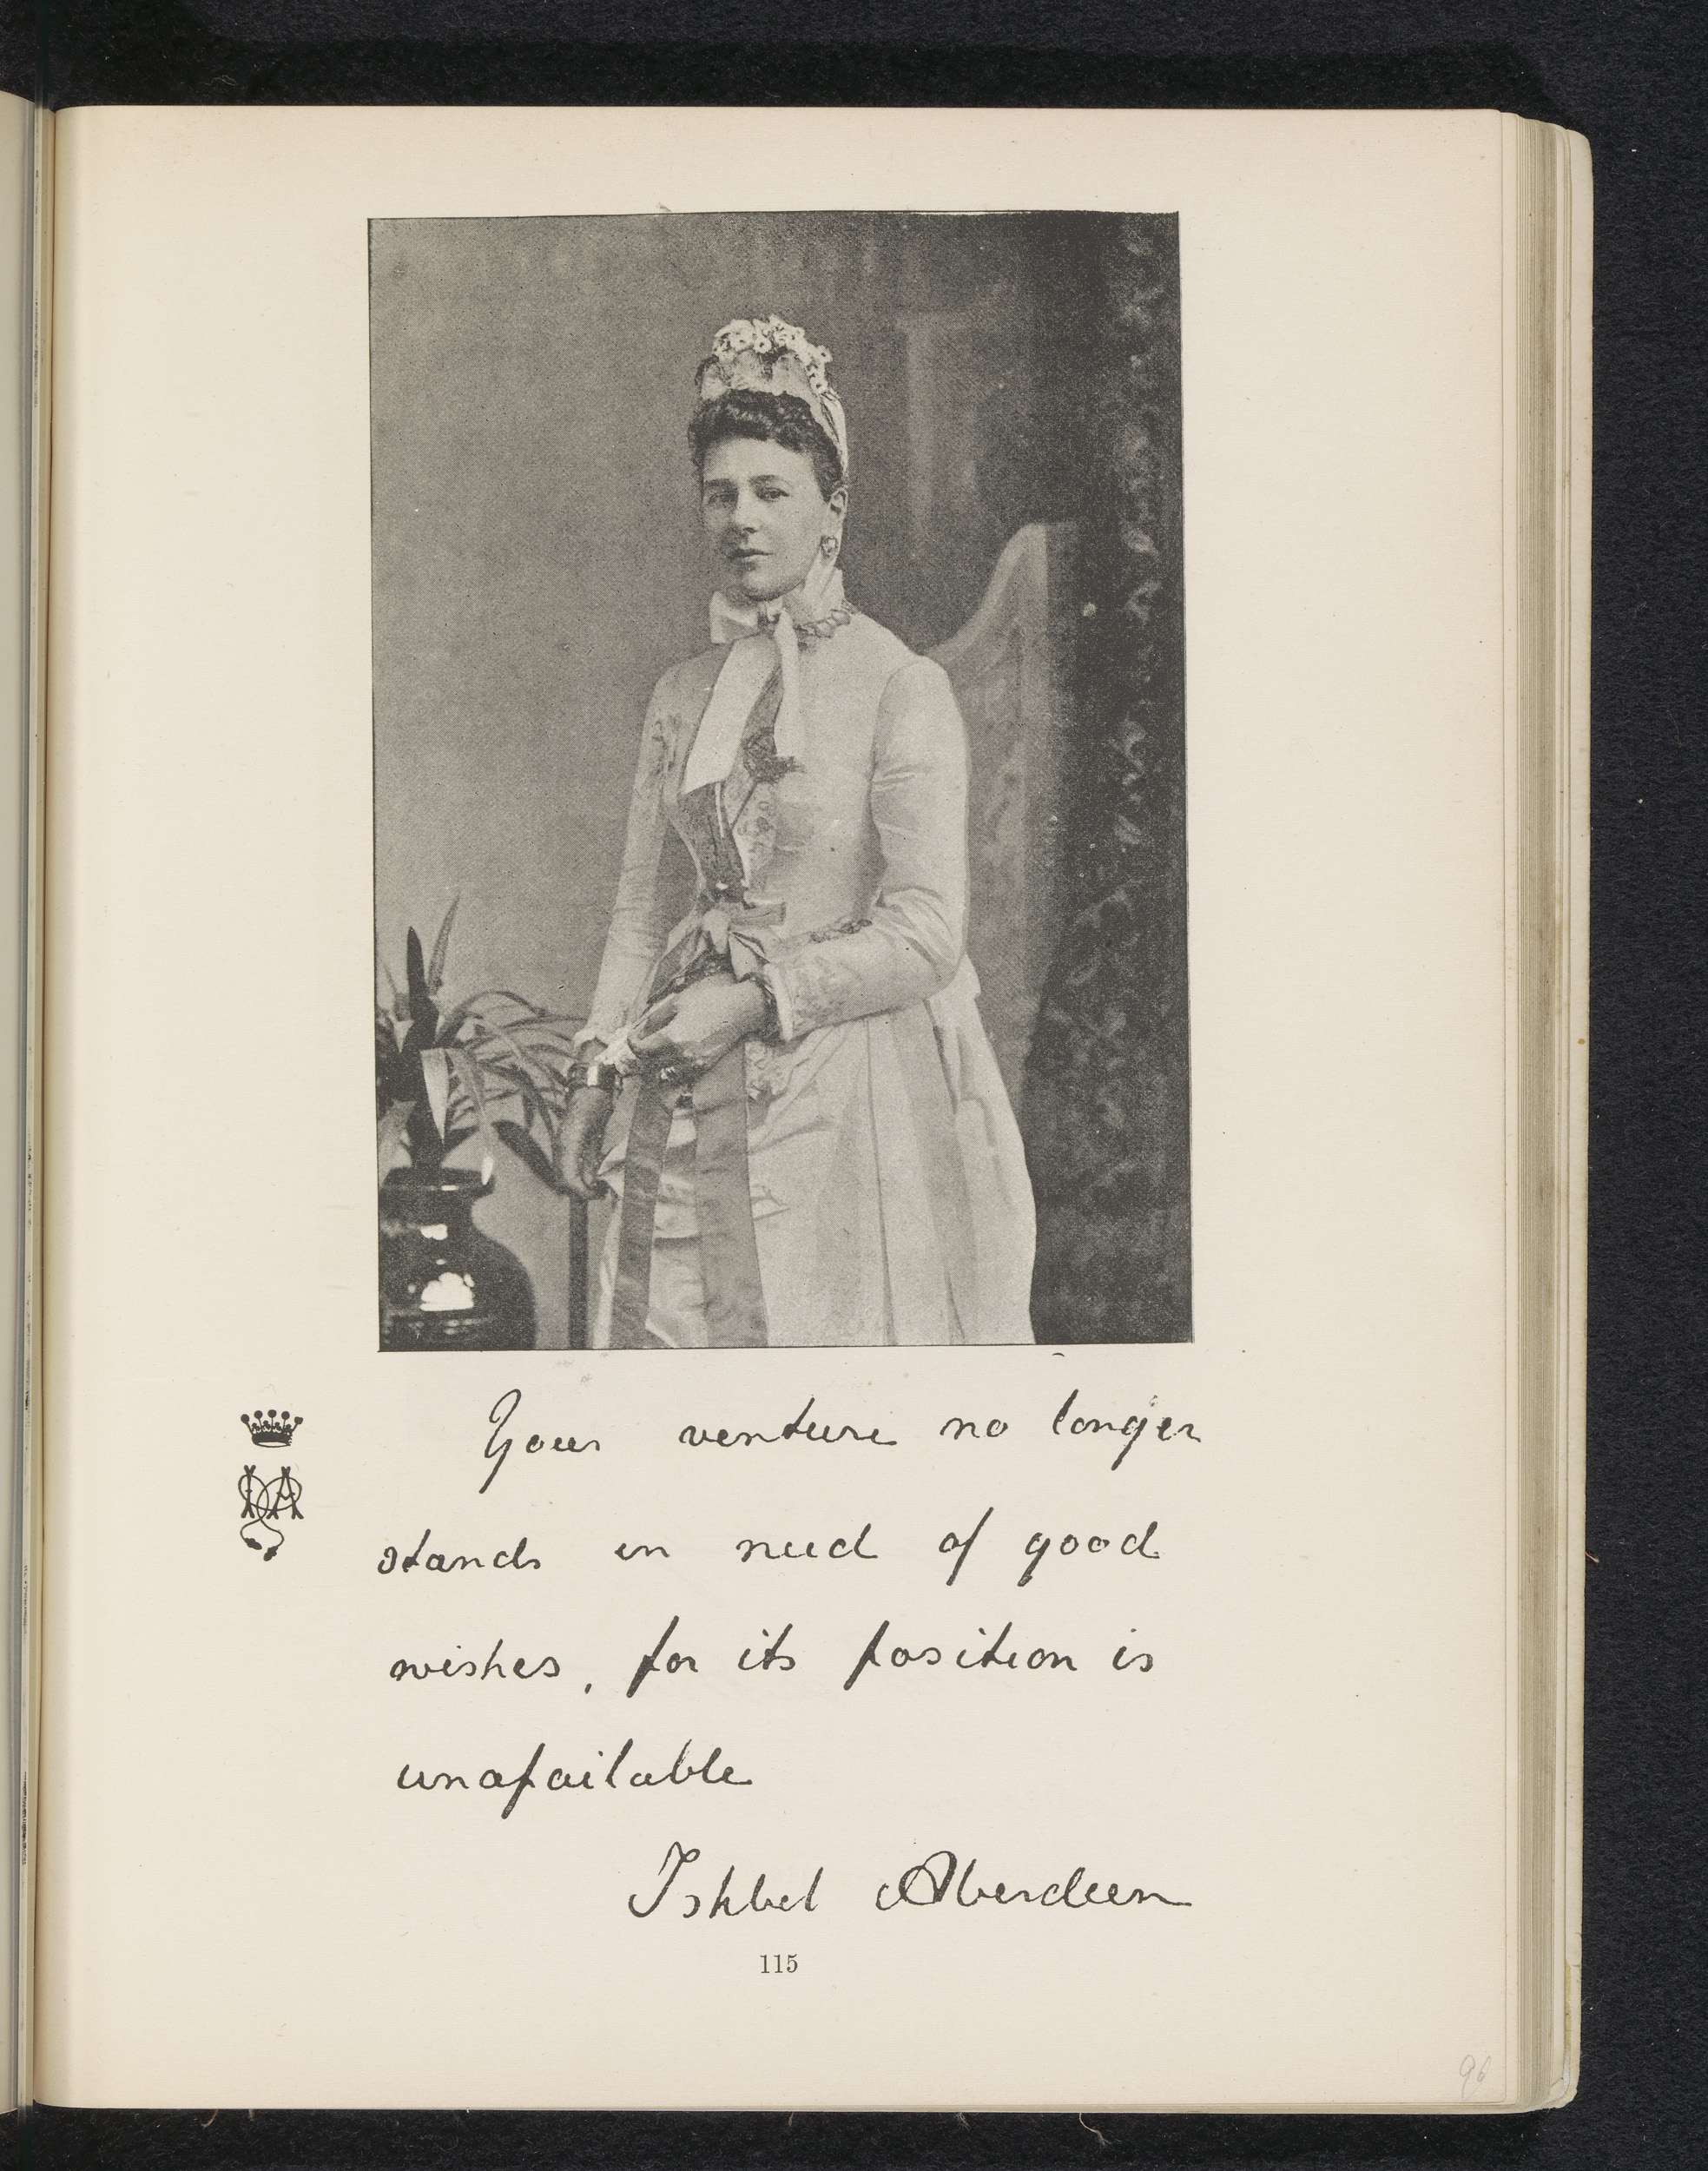 Your venture no longer
stands in need of good
wishes, for its position is
unafailable
Ishbel Aberdeen
115
96